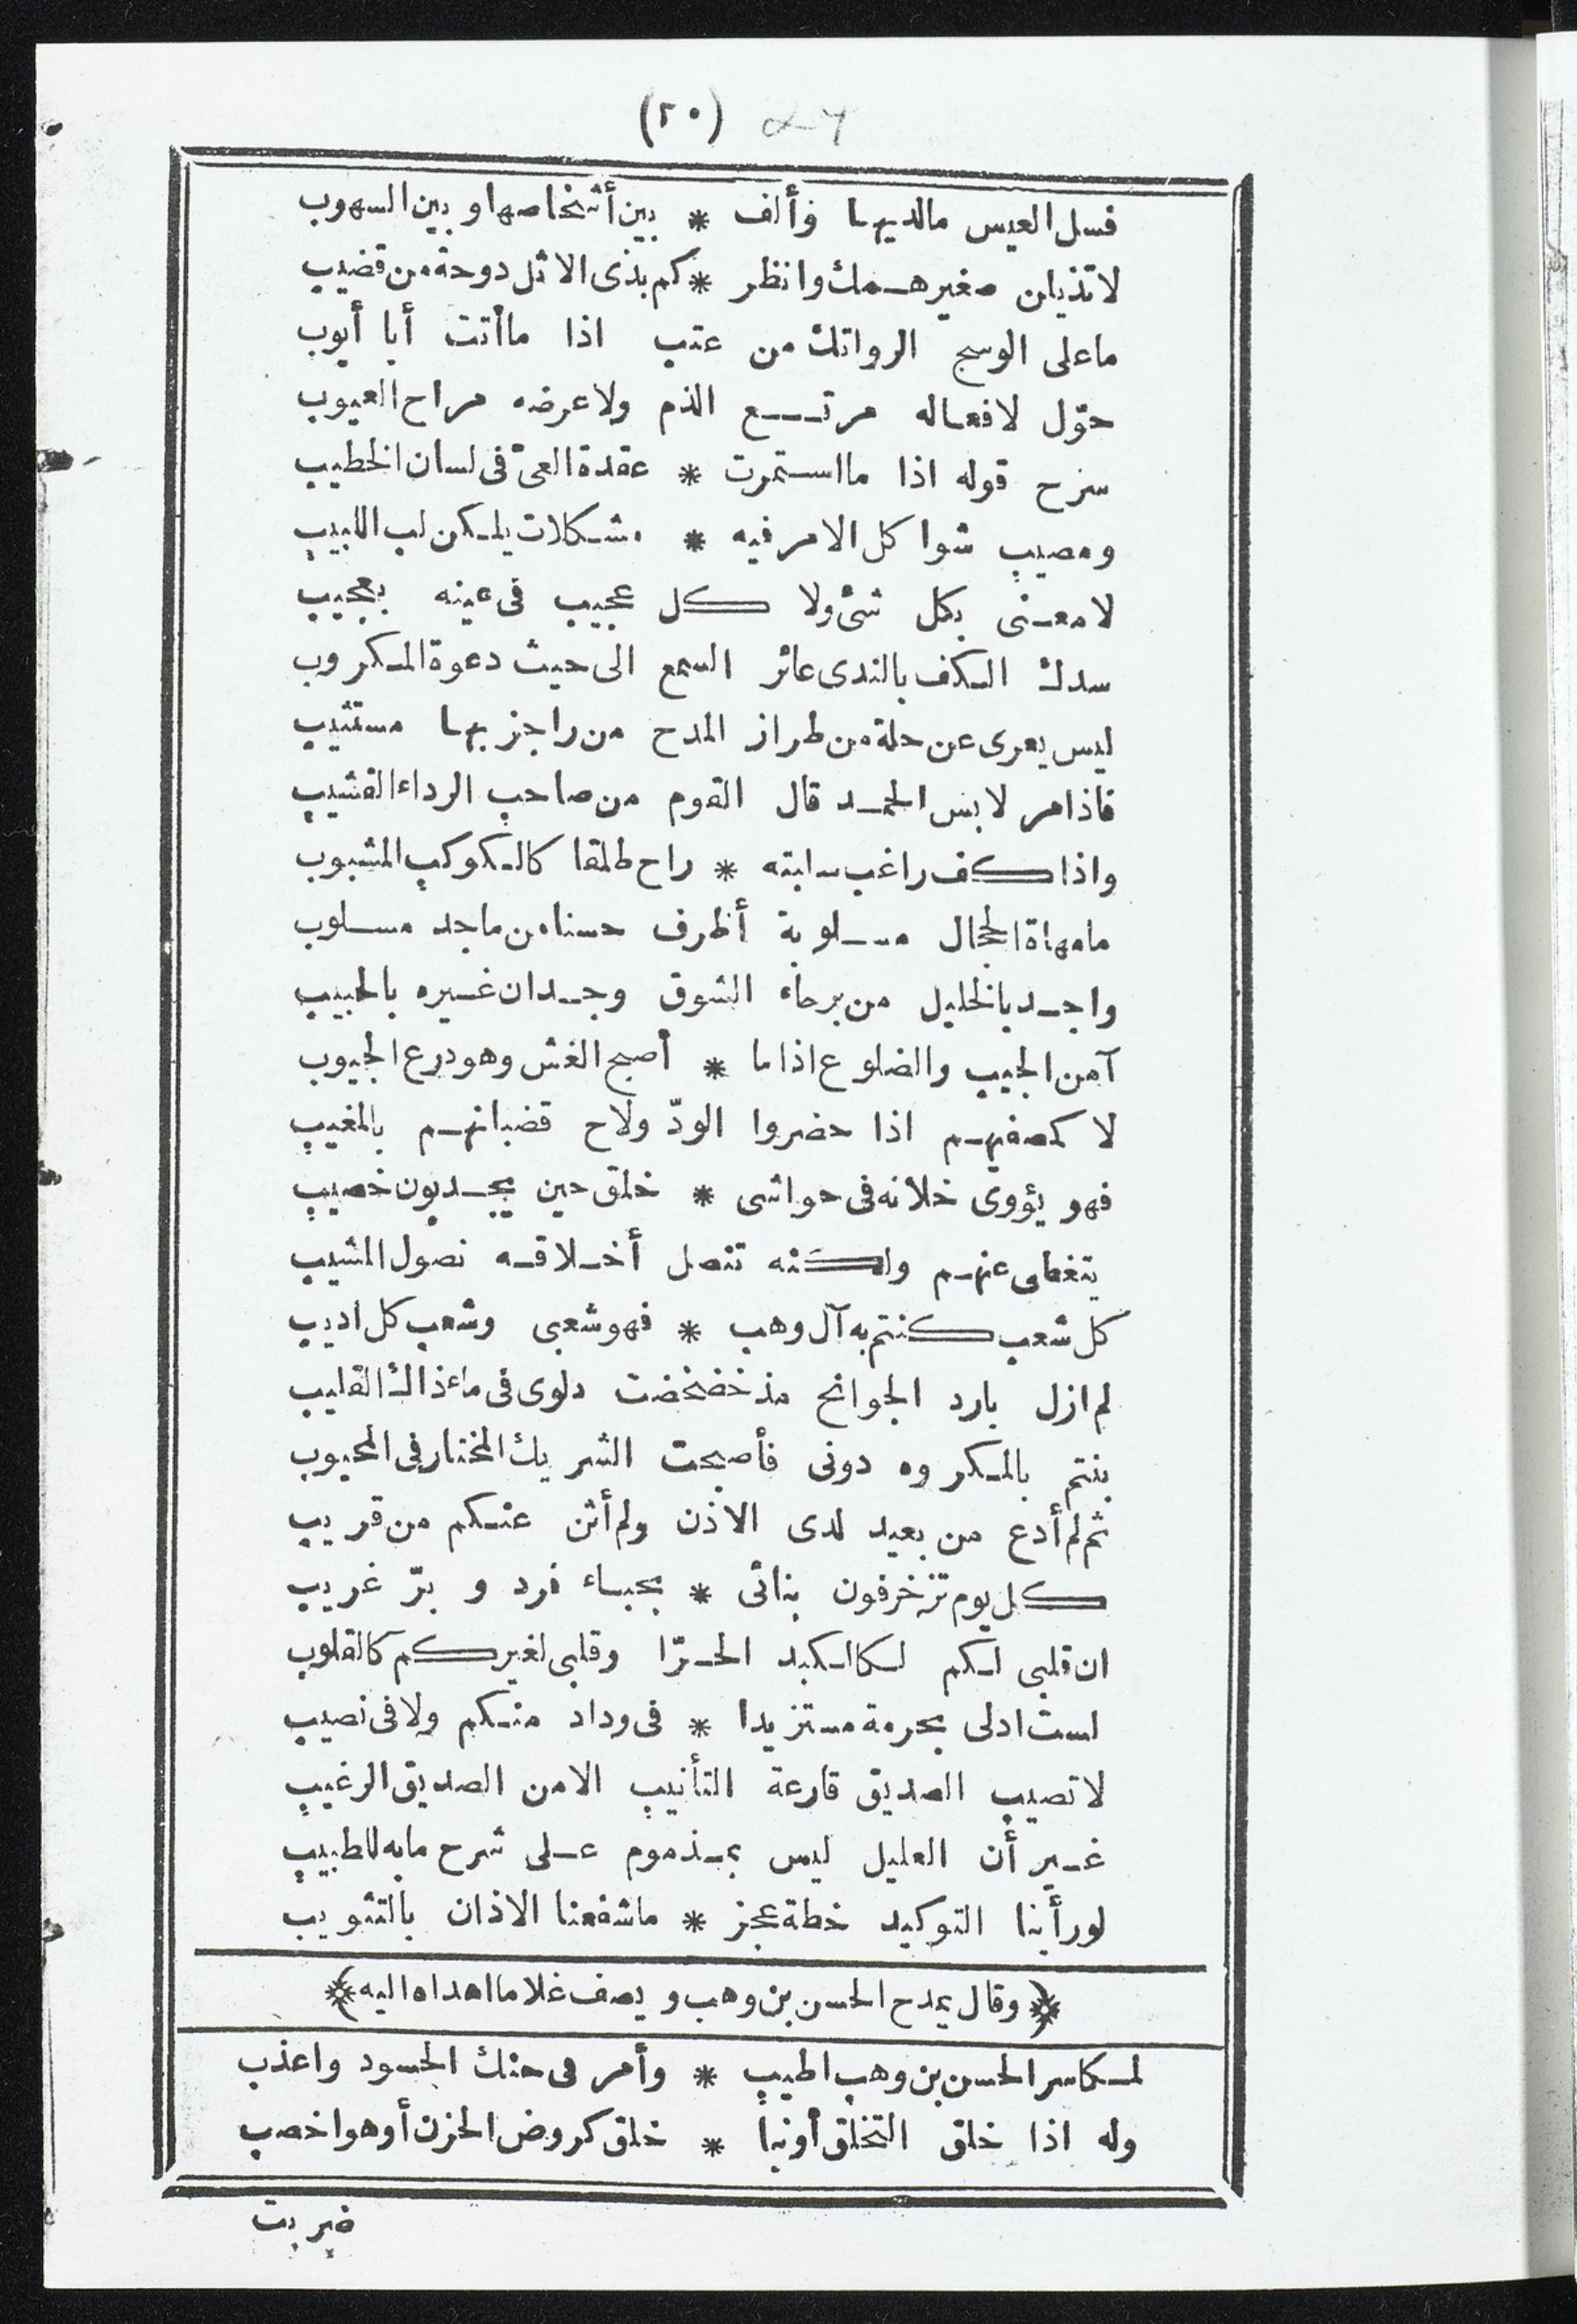 (٢٠)
فسل العيس مالديها وألف * بين أشخاصها وبين السهوب
لا تذيلن صغير همك وانظر * كم بذى الاثل دوحة من قضيب
ما على الوسج الرواتك من عتب اذا ما أتت أبا أيوب
حوّل لا فعاله مرتع الذم ولا عرضه مراح العيوب
سرح قوله اذا ما استمرت * عقدة العىّ فى لسان الخطيب
ومصيب شواكل الامر فيه * مشكلات يلكن لب اللبيب
لا معنى بكل شئ ولا كل عجيب فى عينه بعجيب
سدك الكف بالندى عائر السمع الى حيث دعوة المكروب
ليس يعرى عن حلة من طراز المدح من راجز بها مستثيب
فاذا مر لابس الحمد قال القوم من صاحب الرداء القشيب
واذا كف راغب سلبته * راح طلقا كالكوكب المشبوب
ما مهاة الحجال مسلوبة أظرف حسنا من ماجد مسلوب
واجد بالخليل من برحاء الشوق وجدان غيره بالحبيب
آمن الجيب والضلوع اذا ما * أصبح الغش وهو درع الجيوب
لا كمصفيهم اذا حضروا الودّ ولاح قضبانهم بالمغيب
فهو يؤوى خلانه فى حواشى * خلق حين يجدبون خصيب
يتغطى عنهم ولكنه تنصل أخلاقه نصول المشيب
كل شعب كنتم به آل وهب * فهو شعبى وشعب كل اديب
لم ازل بارد الجوانح مذ خضخضت دلوى فى ماء ذاك القليب
بنتم بالمكروه دونى فأصبحت الشريك المختار فى المحبوب
ثم لم أدع من بعيد لدى الاذن ولم أثن عنكم من قريب
كل يوم تزخرفون بنائى * بحباء فرد و برّ غريب
ان قلبى لكم لكالكبد الحرّا وقلبى لغيركم كالقلوب
لست ادلى بحرمة مستزيدا * فى وداد منكم ولا فى نصيب
لا تصيب الصديق قارعة التأنيب الا من الصديق الرغيب
غير أن العليل ليس بمذموم على شرح ما به للطبيب
لو رأينا التوكيد خطة عجز * ما شفعنا الاذان بالتثويب
﴿وقال يمدح الحسن بن وهب و يصف غلاما اهداه اليه﴾
لمكاسر الحسن بن وهب اطيب * وأمر فى حنك الحسود واعذب
وله اذا خلق التخلق أونبا * خلق كروض الحزن أوهو اخصب
ضربت